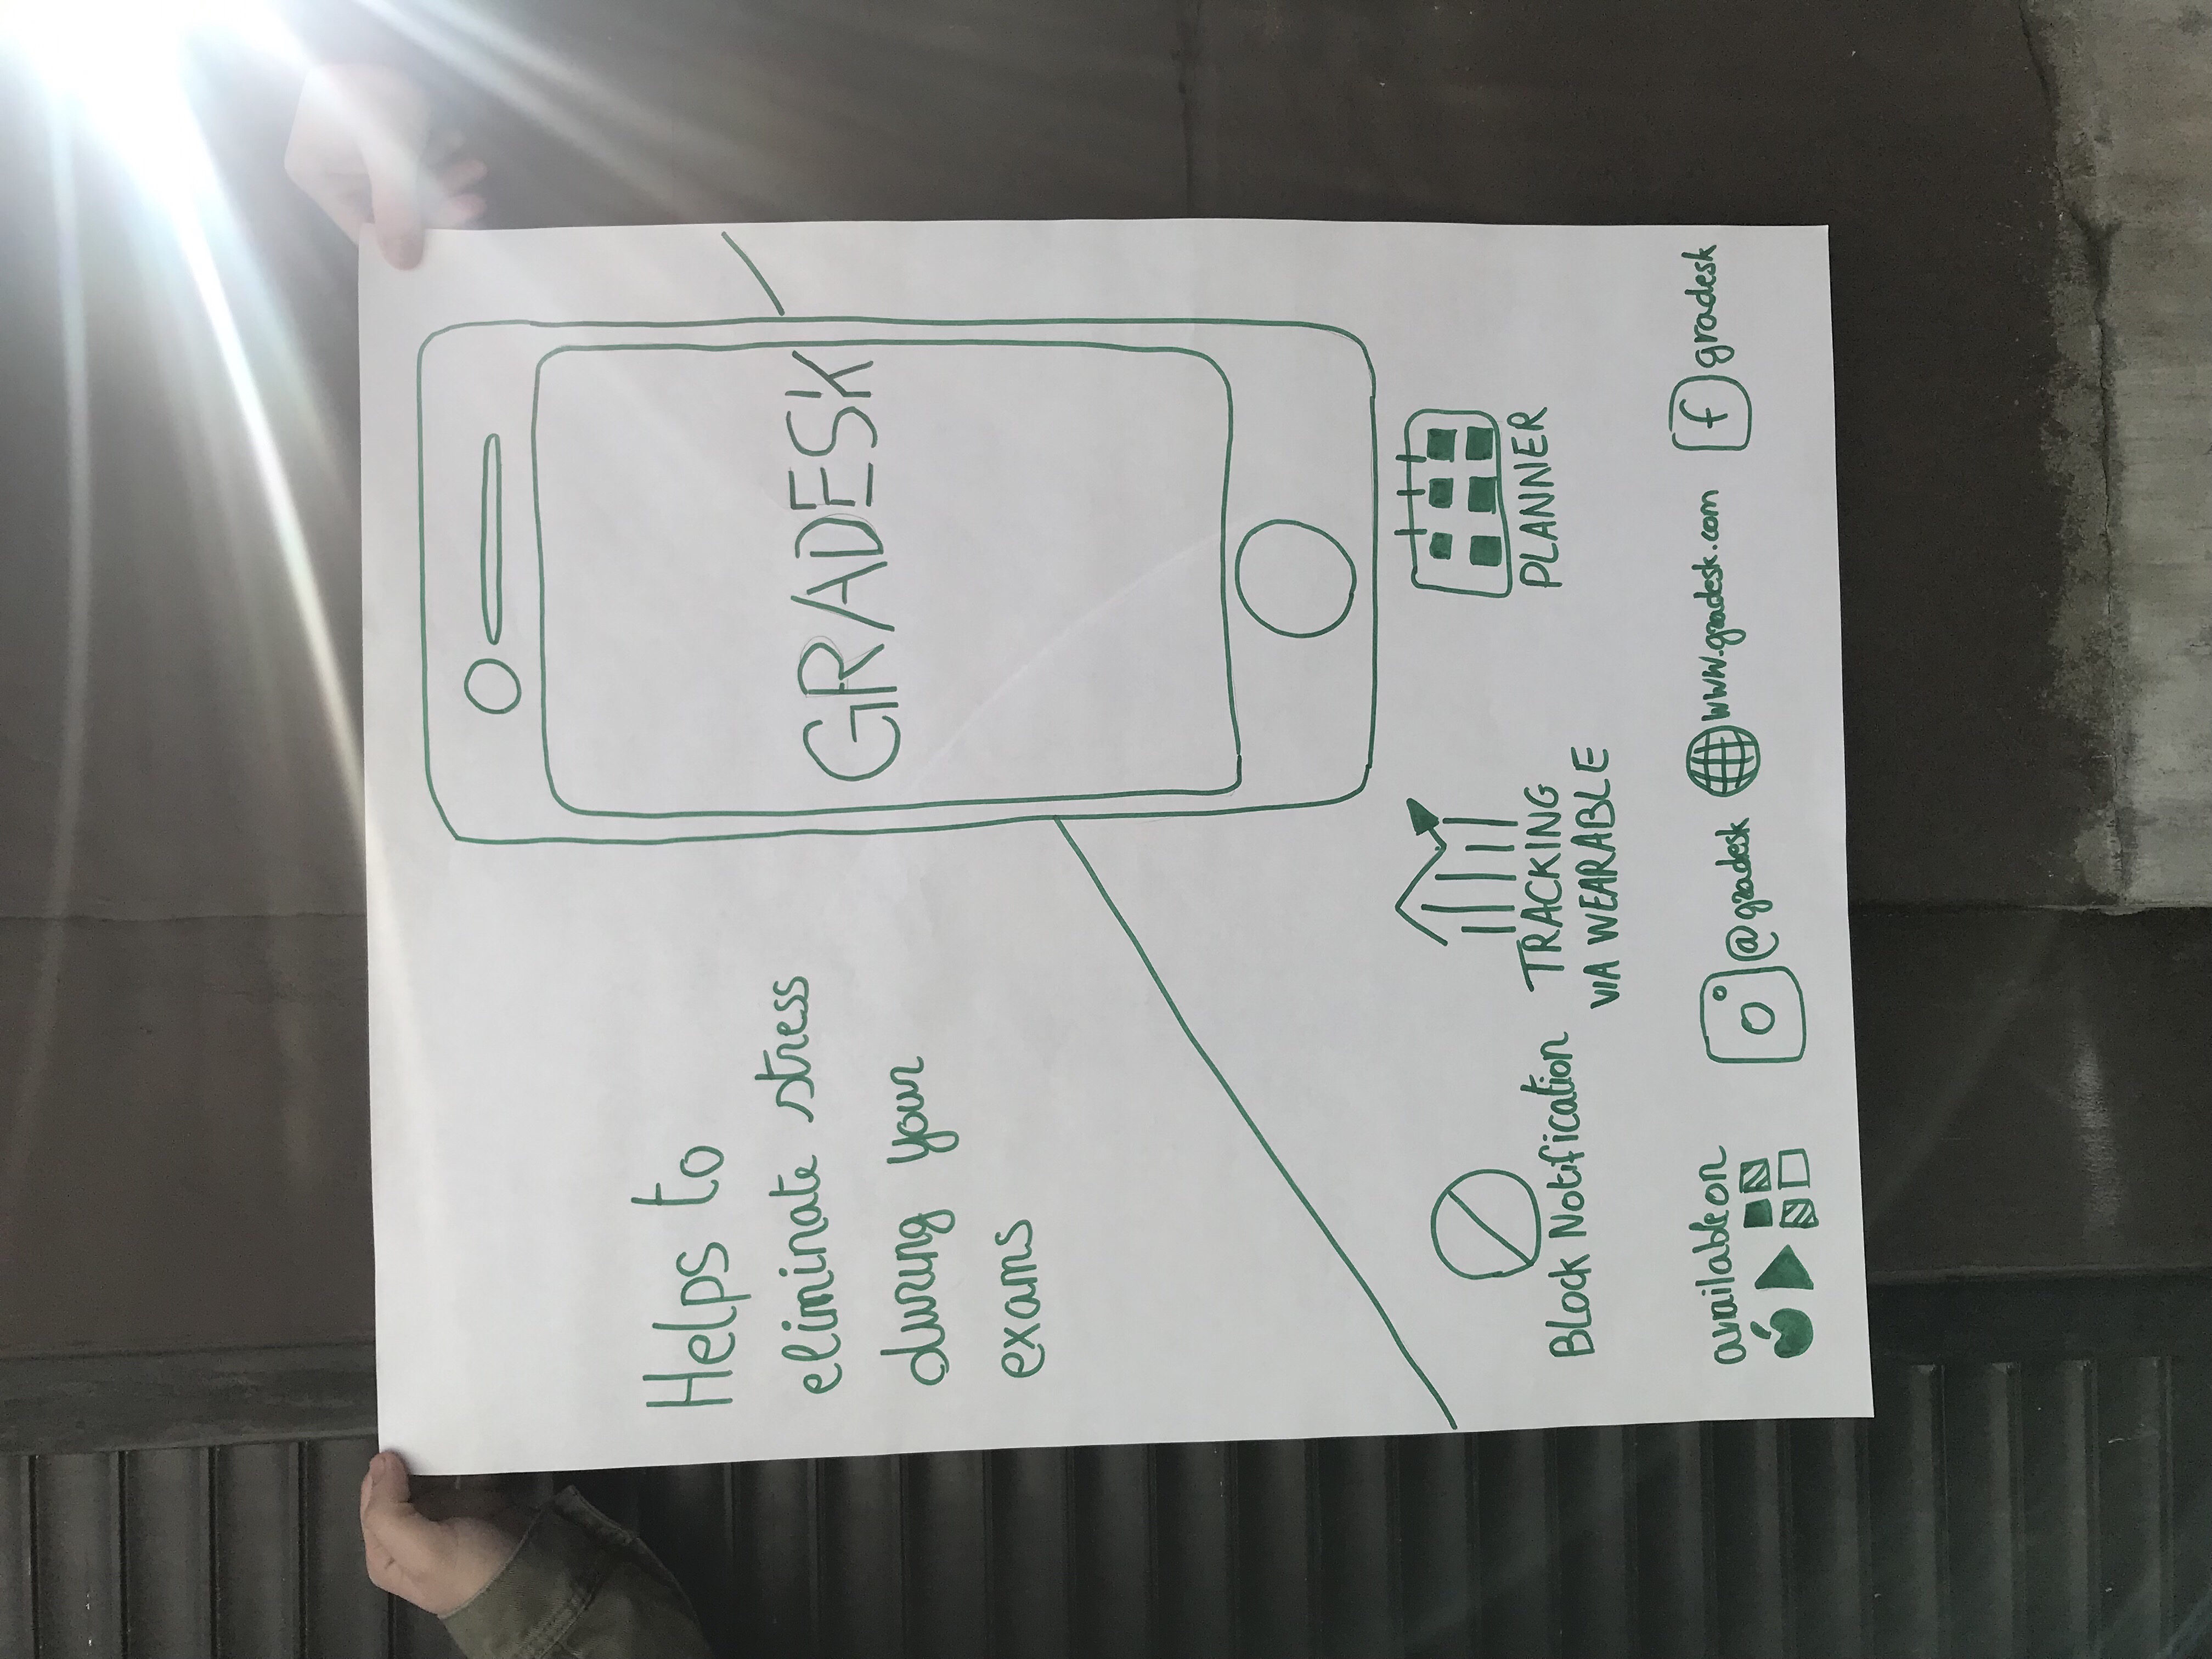 Helps to
eliminate stress
during your
exams
GRADESK
Block Notification
TRACKING
VIA WEARABLE
PLANNER
available on
@gradesk
www.gradesk.com
f gradesk